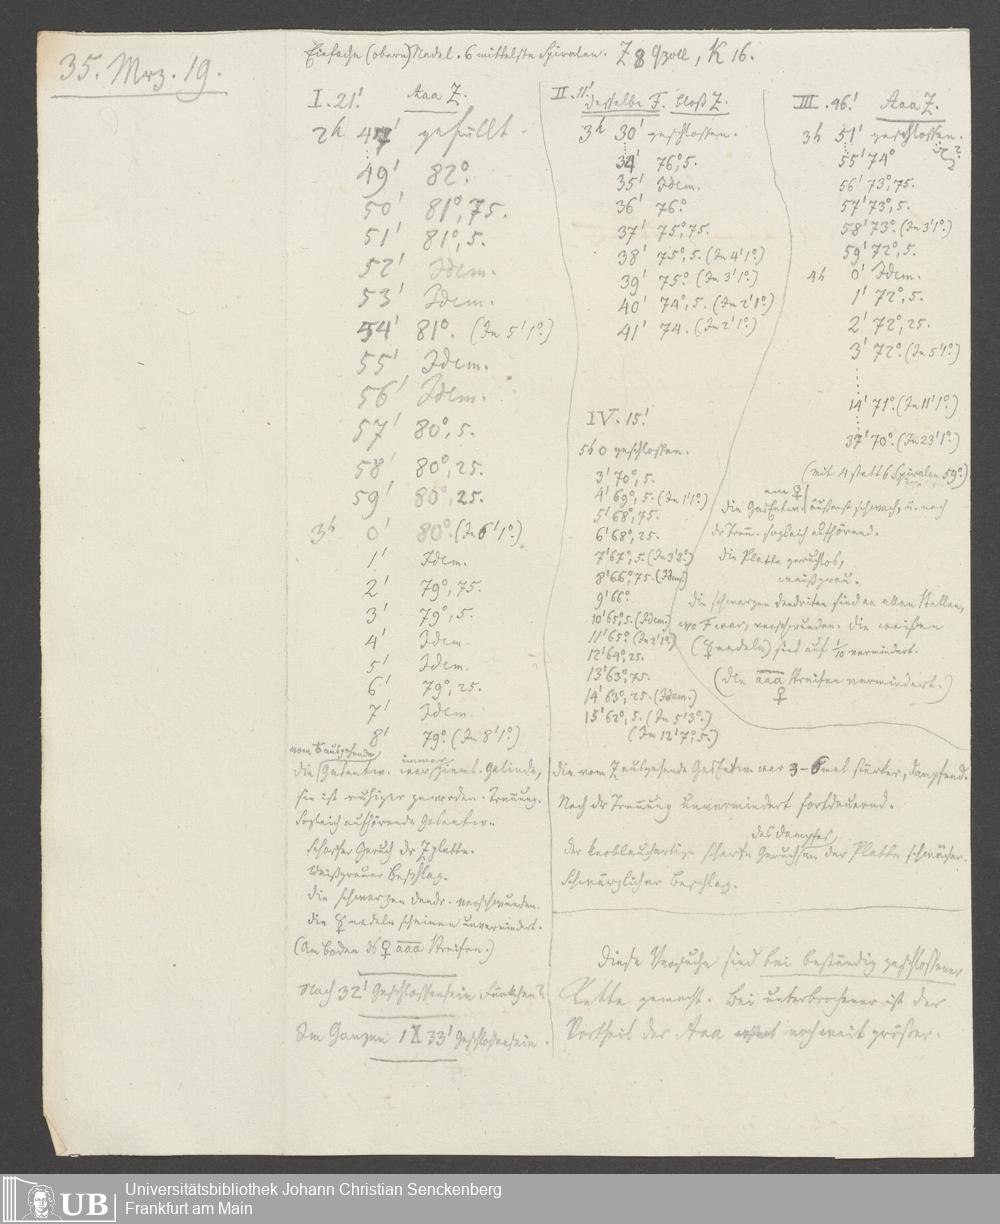 35. Mrz. 19.
Einfache (obere) Nadel. 6 mittelste Spiralen. Z 8 Qzoll, K 16.
I. 21.' Aaa Z.
2h 47' gefüllt.
49' 82°.
50' 81°,75.
51' 81°,5.
52' Idem.
53' Idem.
54' 81°. (In 5' 1°.)
55' Idem.
56' Idem.
57' 80°,5.
58' 80°,25.
59' 80°,25.
3h 0' 80°. (In 6' 1°.)
1' Idem.
2' 79°,75.
3' 79°,5.
4' Idem.
5' Idem.
6' 79°,25.
7' Idem.
8' 79°. (In 8' 1°.)
vom Z ausgehende
immer
die Gasentw. war ziemt. Gelinde,
sie ist ruhiger geworden. Trennung.
Sogleich aufhörende Gasentw.
Scharfer Geruch dr Zplatte.
Weißgrauer Beschlag.
die schwarzen Dendr. verschwunden.
die ☿nadeln scheinen unvermindert.
(Am Boden ds ♀ aaa Streifen.)
Nach 32' Geschlossensein Fünkchen?
Im Ganzen 1 33' Geschlossensein.
II. 11.'
dieselbe F. bloß Z.
3h 30' geschlossen.
34' 76°,5.
35' Idem.
36' 76°.
37' 75°,75.
38' 75°,5. (In 4' 1°.)
39' 75°. (In 3' 1°.)
40' 74°,5. (In 2' 1°.)
41' 74. (In 2' 1°.)
III. 46.' Aaa Z.
3h 51' geschlossen.
55' 74°
56' 73°,75.
57' 73°,5.
58' 73°. (In 3' 1°.)
59' 72°,5.
4h 0' Idem.
1' 72°,5.
2' 72°,25.
3' 72°. (In 5' 1°.)
14' 71°. (In 11' 1°.)
37' 70°. (In 23' 1°.)
(mit 4 statt 6 Spiralen 59°.)
am ♀
die Gasentw. äußerst schwach, u. nach
dr Trenn. sogleich aufhörend.
die Platte geruchlos,
weißgrau.
die schwarzen Dendriten sind an allen Stellen,
wo F war, verschwunden. die weißen
(☿nadeln) sind auf 1/10 vermindert.
(die aaa Streifen vermindert.)
♀
IV. 15.'
5h 0 geschlossen.
3' 70°,5.
4' 69°,5. (In 1' 1°.)
5' 68°,75.
6' 68°,25.
7' 67°,5. (In 3' 2°.)
8' 66°,75. (Idem.)
9' 66°.
10' 65°,5. (Idem.)
11' 65°. (In 2' 1°.)
12' 64°,25.
13' 63°,75.
14' 63°,25. (Idem.)
15' 62°,5. (In 5' 3°.)
(In 12' 7°,5.)
die vom Z ausgehende Gasentw. war 3-6mal stärker, dampfend.
Nach dr Trennung unvermindert fortdauernd.
des Dampfes,
der knoblauchartige scharfe Geruch an der Platte schwächer.
Schwärzlicher Beschlag.
Diese Versuche sind bei beständig geschlossener
Kette gemacht. Bei unterbrochener ist der
Vortheil des Aaa noch weit größer.
UB
Universitätsbibliothek Johann Christian Senckenberg
Frankfurt am Main